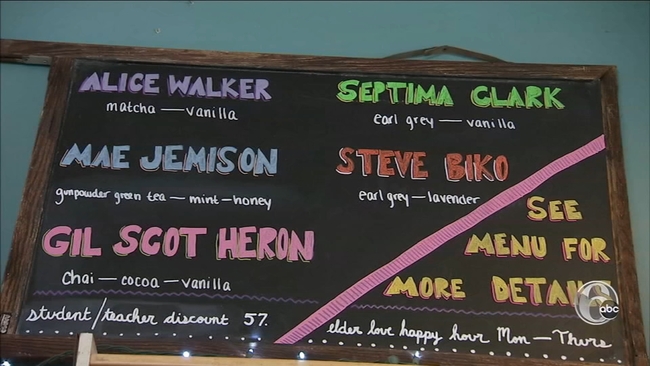 ALICE WALKER
matcha — vanilla
MAE JEMISON
gunpowder green tea — mint — honey
GIL SCOT HERON
Chai — cocoa — vanilla
student/teacher discount 5%
SEPTIMA CLARK
earl grey — vanilla
STEVE BIKO
earl grey — lavender
SEE
MENU FOR
MORE DETAI
elder love happy hour Mon — Thurs
6abc